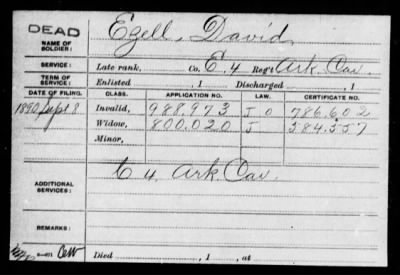 DEAD
NAME OF SOLDIER: Ezell, David
SERVICE: Late rank, Co. E, 4 Reg't Ark Cav.
TERM OF SERVICE: Enlisted , 1 Discharged , 1
DATE OF FILING. CLASS. APPLICATION NO. LAW. CERTIFICATE NO.
1890 Sept 8 Invalid, 988,973 J O 786,602
Widow, 800,020 J 584,557
Minor,
ADDITIONAL SERVICES: E 4 Ark Cav.
REMARKS:
Died , 1 , at